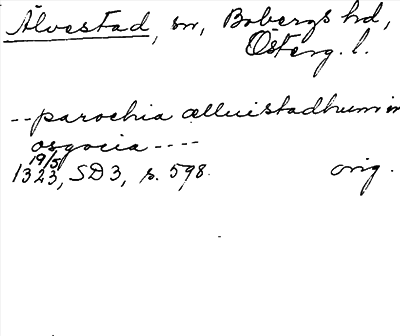 Älvestad, sn, Bobergs hd,
Österg. l.
-- parochia ælluistadhum in
osgocia ----
19/5
1323, SD 3, s. 598. orig.